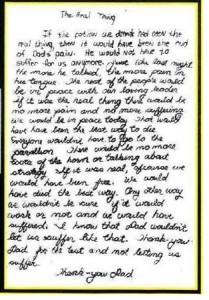 The Real Thing
If the potion we drank had been the
real thing, then it would have been the end
of Dad's pain. He would not have to
suffer for us anymore. Just like last night
the more he talked, the more pain on
his tongue. The rest of the people would
be in peace with our loving leader
if it was the real thing there would be
no more pain and no more suffering
we would be in peace today. That really
have been the best way to die
Everyone wouldn't have to go to the
pavillion There would be no more
toots of the horn or talking about
strategy If it was real, of course we
would have been free. We would
have died the best way. Any other way
we wouldn't be sure if it would
work or not and we would have
suffered. I know that Dad wouldn't
let us suffer like that. Thank-you
Dad for the test and not letting us
suffer.
Thank-you Dad